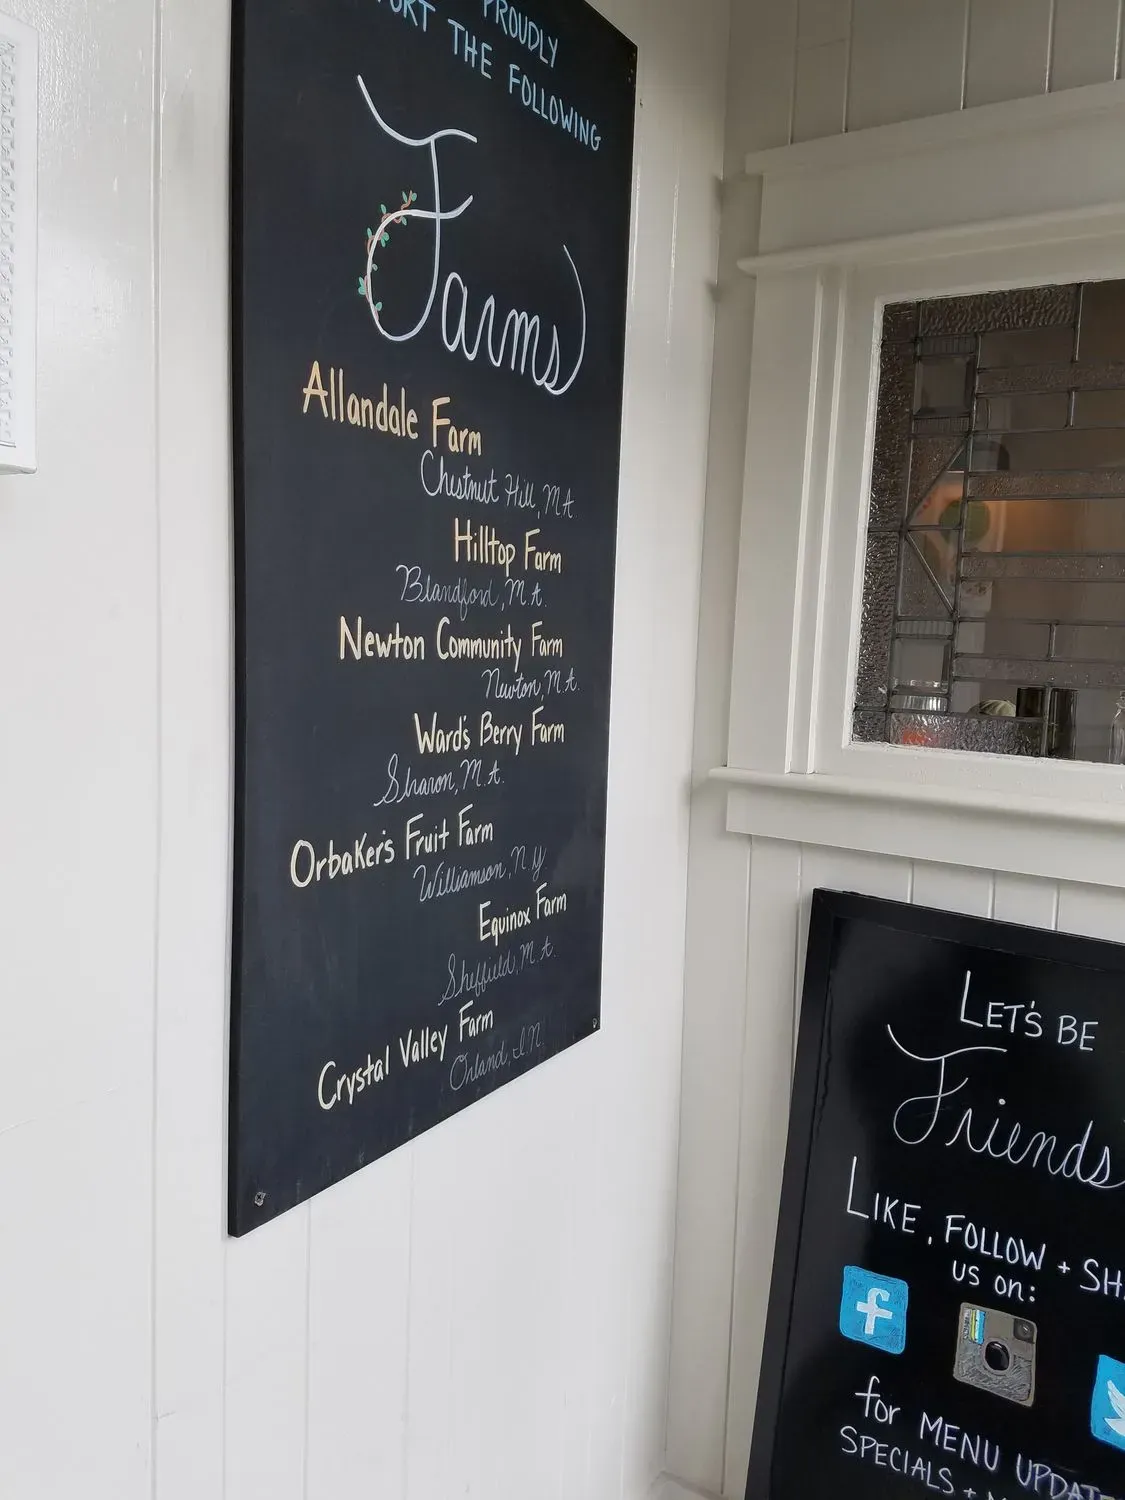 PROUDLY
THE FOLLOWING
Farms
Allandale Farm
Chestnut Hill, M.A.
Hilltop Farm
Blandford, M.A.
Newton Community Farm
Newton, M.A.
Ward's Berry Farm
Sharon, M.A.
Orbaker's Fruit Farm
Williamson, N.Y
Equinox Farm
Sheffield, M.A.
Crystal Valley Farm
Orland, I.N.
LET'S BE
Friends
LIKE, FOLLOW +
US ON:
f
for MENU
SPECIALS +